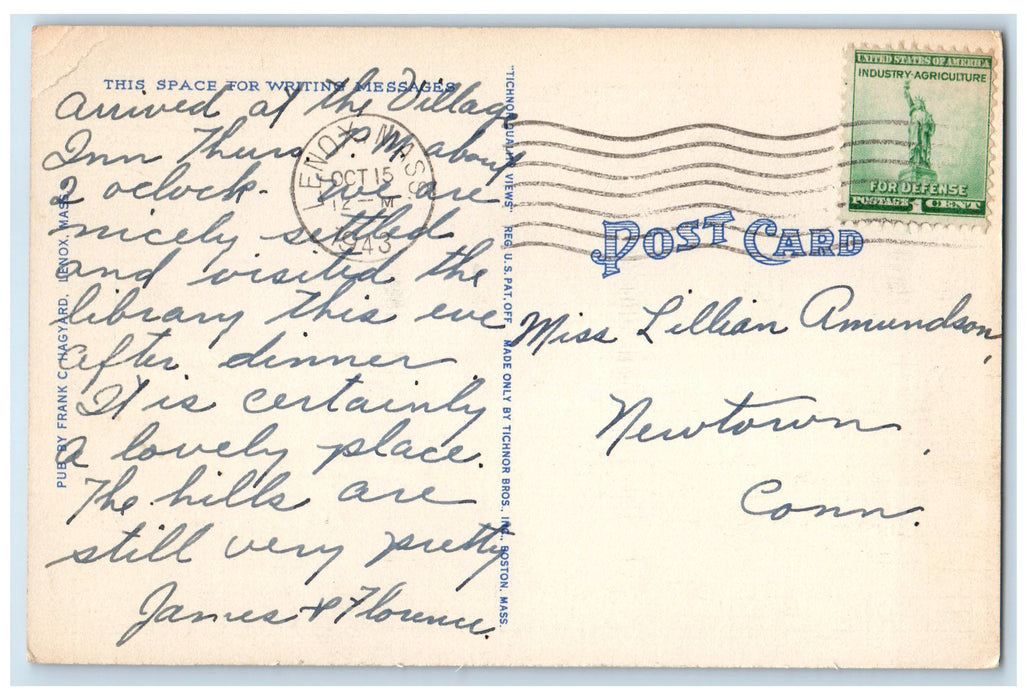 THIS SPACE FOR WRITING MESSAGES
arrived at the Village
Inn Thurs P.M about
2 oclock. We are
nicely settled
and visited the
library this eve
after dinner
It is certainly
a lovely place.
The hills are
still very pretty
James & Florence.
PUB. BY FRANK C. HAGYARD, LENOX, MASS.
LENOX, MASS.
OCT 15
12 - M
1943
"TICHNOR QUALITY VIEWS" REG. U.S. PAT. OFF. MADE ONLY BY TICHNOR BROS., INC., BOSTON, MASS.
UNITED STATES OF AMERICA
INDUSTRY-AGRICULTURE
FOR DEFENSE
POSTAGE 1 CENT
POST CARD
Miss Lillian Amundson,
Newtown,
Conn.